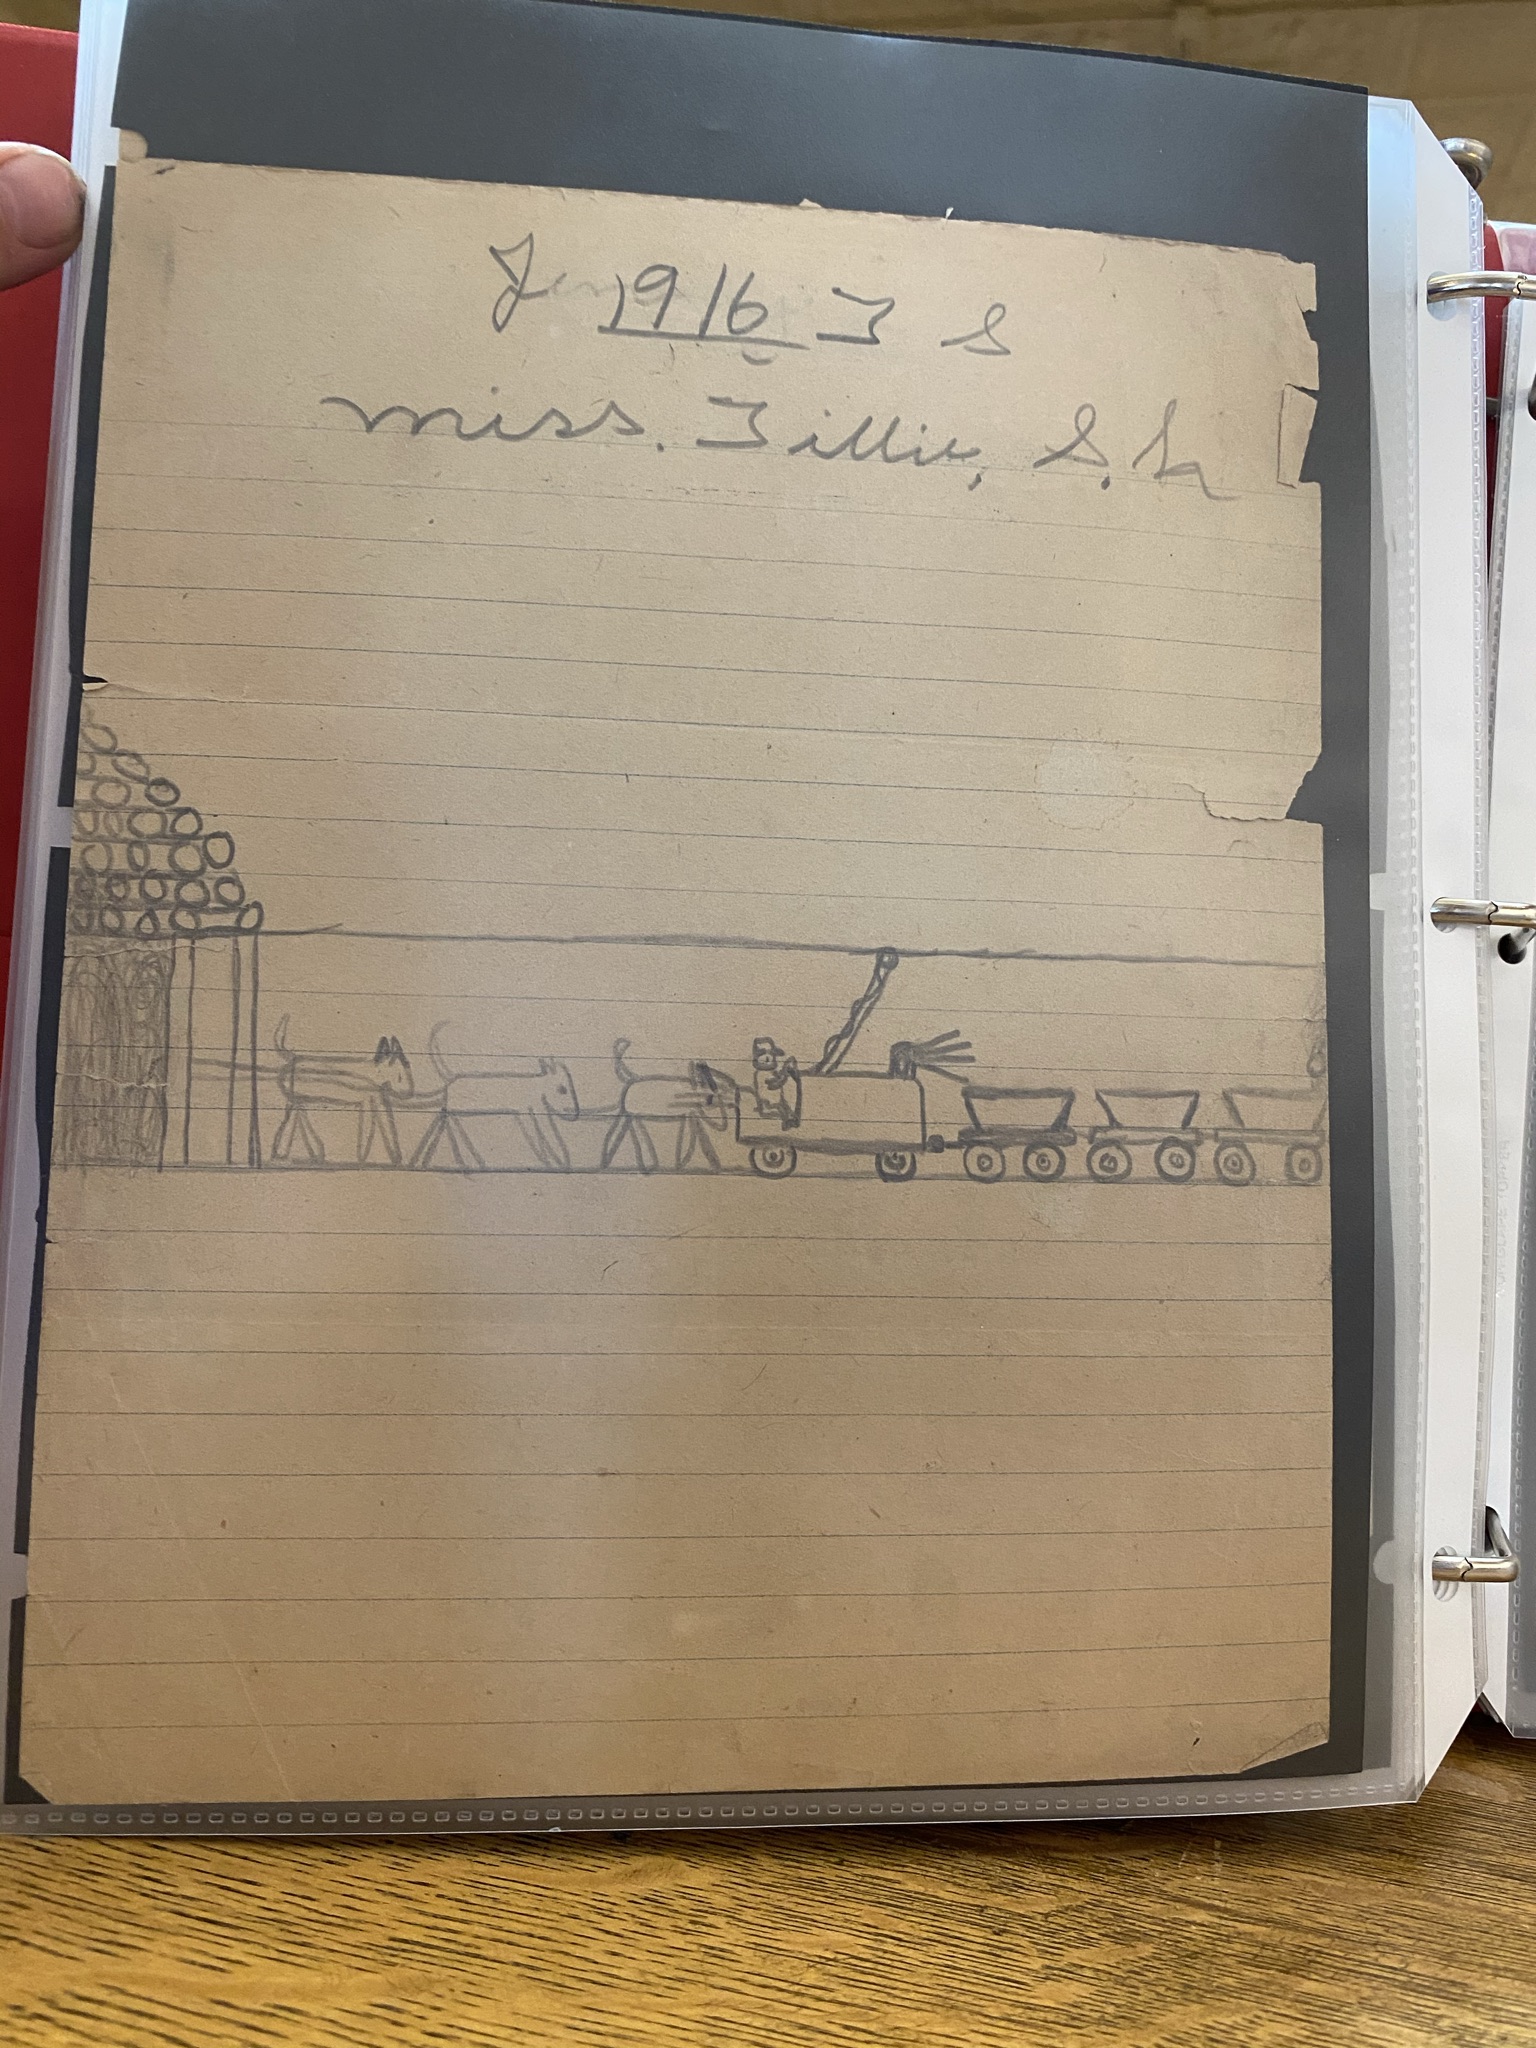 J 1916 T S
miss. Tillie, S, La